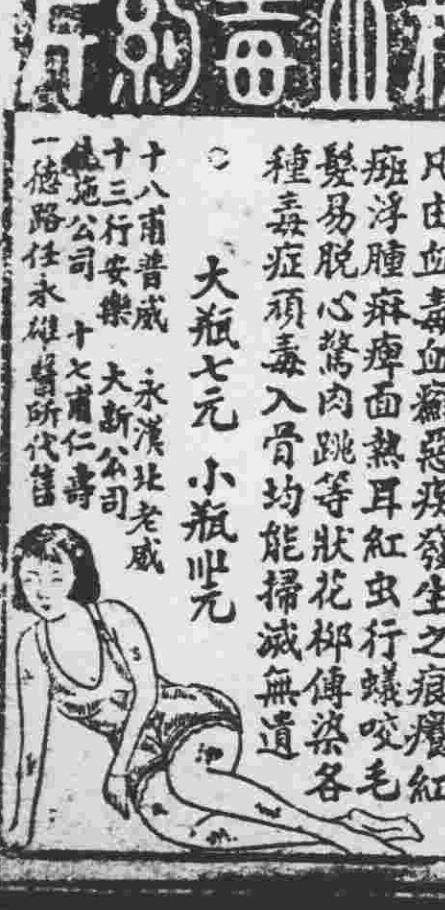 血毒約片
凡因血毒血癩惡疾發生之痕癢紅
斑浮腫痳痺面熱耳紅虫行蟻咬毛
髮易脫心驚肉跳等狀花柳傳染各
種毒症頑毒入骨均能掃滅無遺
大瓶七元 小瓶元
十八甫普威 永漢北老威
十三行安樂 大新公司
施公司 十七甫仁壽
一德路任永雄醫所代售